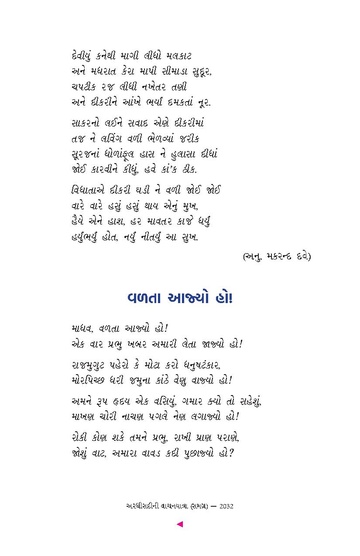 દેવીયું કનેથી માગી લીધો મલકાટ
અને મધરાત કેરા માપી સીમાડા સુદૂર,
ચપટીક રજ લીધી નખેતર તણી
અને દીકરીને આંખે ભર્યાં દમકતાં નૂર.
સાકરનો લઈને સવાદ એણે દીકરીમાં
તજ ને લવિંગ વળી ભેળવ્યાં જરીક
સૂરજનાં ધોળાંફૂલ હાસ ને હુલાસા દીધાં
જોઈ કારવીને કીધું, હવે કાં'ક ઠીક.
વિધાતાએ દીકરી ઘડી ને વળી જોઈ જોઈ
વારે વારે હસું હસું થાય એનું મુખ,
હૈયે એને હાશ, હર માવતર કાજે ધર્યું
હર્યુંભર્યું હોત, નર્યું નીતર્યું આ સુખ.
(અનુ. મકરન્દ દવે)
વળતા આજ્યો હો!
માધવ, વળતા આજ્યો હો!
એક વાર પ્રભુ ખબર અમારી લેતા જાજ્યો હો!
રાજમુગુટ પહેરો કે મોટા કરો ધનુષટંકાર,
મોરપિચ્છ ધરી જમુના કાંઠે વેણુ વાજ્યો હો!
અમને રૂપ હૃદય એક વસિયું, ગમાર ક્યો તો સહેશું,
માખણ ચોરી નાચણ પગલે નેણ લગાજ્યો હો!
રોકી કોણ શકે તમને પ્રભુ, રાખી પ્રાણ પરાણે,
જોશું વાટ, અમારા વાવડ કદી પુછાજ્યો હો?
અરધીસદીની વાચનયાત્રા (સમગ્ર) — 2032